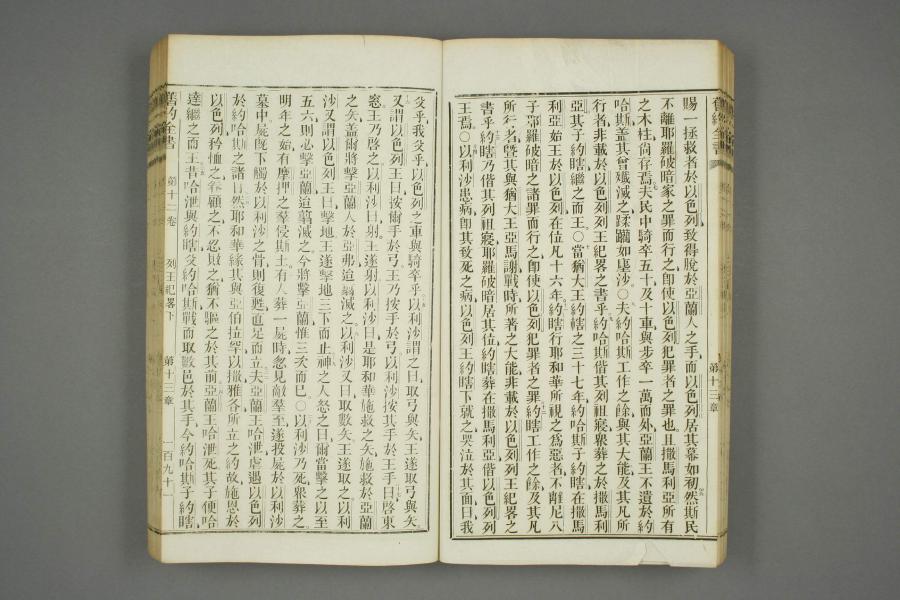 賜一拯救者於以色列致得脫於亞蘭人之手而以色列居其幕如初然斯民
不離耶羅破暗家之罪而行之卽使以色列犯罪者之罪也且撒馬利亞所有
之木柱尙存焉夫民中騎卒五十及十車與步卒一萬而外亞蘭王不遺於約
哈斯蓋其曾殲減之蹂躪如塵沙○夫約哈斯工作之餘與其大能及其凡所
行者非載於以色列列王紀畧之書乎約哈斯偕其列祖寢衆葬之於撒馬利
亞其子約瞎繼之而王○當猶大王約轄之三十七年約哈斯子約瞎在撒馬
利亞始王於以色列在位凡十六年約瞎行耶和華所視之爲惡者不離尼八
子耶羅破暗之諸罪而行之卽使以色列犯罪者之罪約瞎工作之餘及其凡
所行者曁其與猶大王亞馬謝戰時所著之大能非載於以色列列王紀畧之
書乎約瞎乃偕其列祖寢耶羅破暗居其位約瞎葬在撒馬利亞偕以色列列
王焉○以利沙患病卽其致死之病以色列王約瞎下就之哭泣於其面曰我
舊約全書
第十三章
父乎我父乎以色列之車與騎卒乎以利沙謂之曰取弓與矢王遂取弓與矢
又謂以色列王曰按爾手於弓王乃按手於弓以利沙按其手於王手曰啓東
窓王乃啓之以利沙曰射王遂射以利沙曰是耶和華施救之矢施救於亞蘭
之矢蓋爾將擊亞蘭人於亞弗迨殲滅之以利沙又曰取數矢王遂取之以利
沙又謂以色列王曰擊地王遂擊地三下而止神之人怒之曰爾當擊之以至
五六則必擊亞蘭迨殲滅之今將擊亞蘭惟三次而已○以利沙乃死衆葬之
明年之始有摩押之羣侵斯土有人葬一屍時忽見敵羣至遂投屍於以利沙
墓中屍旣下觸於以利沙之骨則復甦直足而立夫亞蘭王哈泄虐遇以色列
於約哈斯之諸日然耶和華緣其與亞伯拉罕以撒雅各所立之約故施恩於
以色列矜恤之眷顧之不忍敗之猶不驅之於其前亞蘭王哈泄死其子便哈
達繼之而王昔哈泄與約瞎父約哈斯戰而取數邑於其手今約哈斯子約瞎
舊約全書
第十二卷
列王紀畧下
第十三章
一百九十一